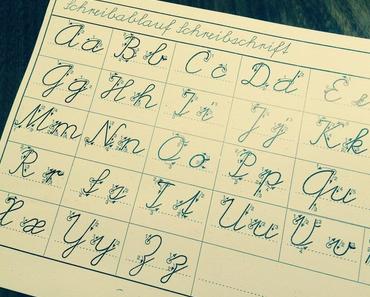 Schreibablauf Schreibschrift
A a B b C c D d E e
G g H h I i J j K k
M m N n O o P p Qu
R r S s T t U u V v
X x Y y Z z